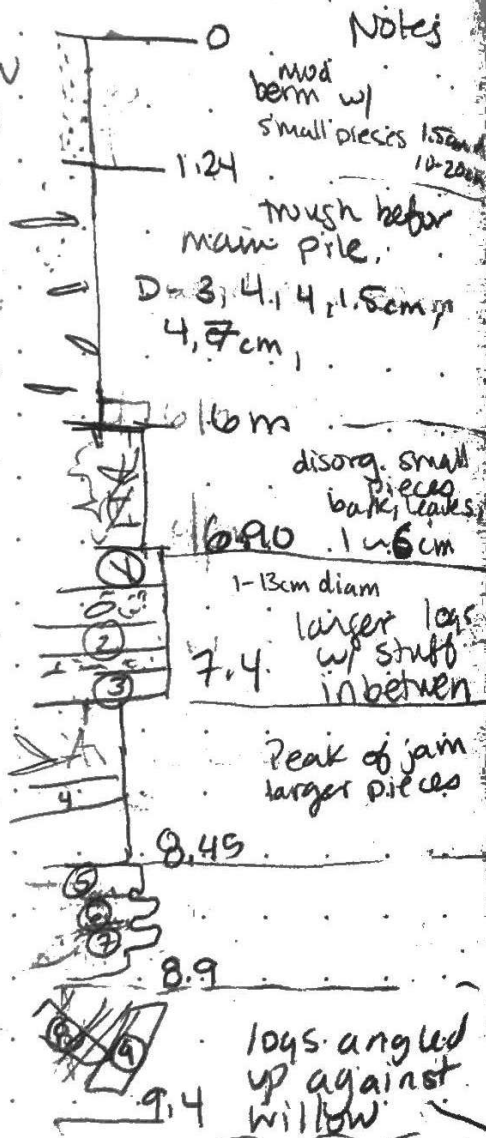 0 Notes
mud
berm w/
small pieces 1.5cm
10-20cm
1.24
trough befor
main pile.
D- 3, 4, 4, 1.5cm,
4, 7cm,
6m
disorg. small
pieces
bark, leaves,
6.90 .1-6cm
1
1-13cm diam
larger logs
2 w/ stuff
7.4 inbetwen
3
Peak of jam
larger pieces
4
8.45
5
6
7
8.9
8 9 logs angled
up against
9.4 willow